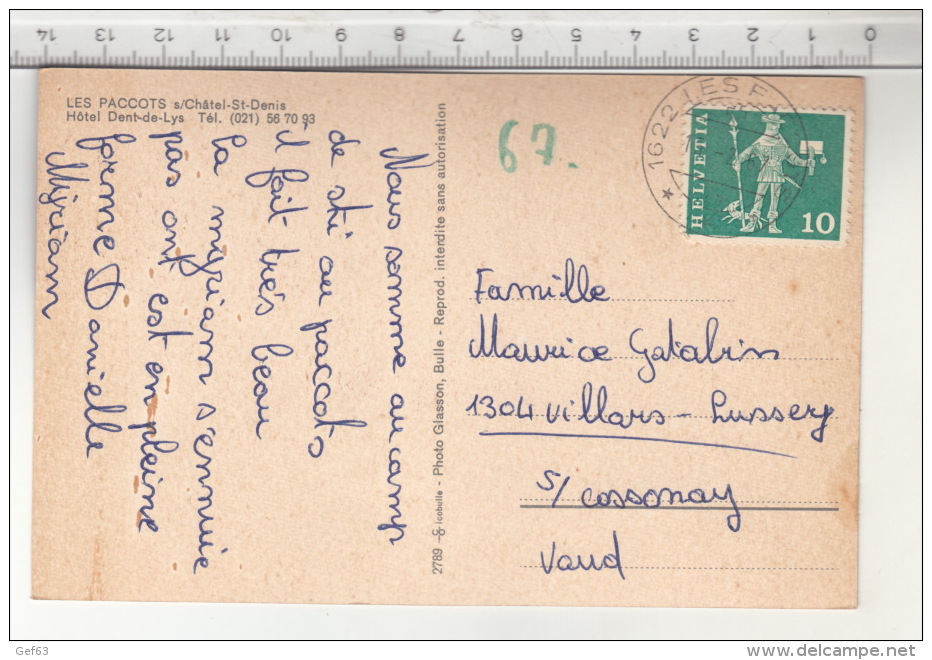 14 13 12 11 10 9 8 7 6 5 4 3 2 1 0
LES PACCOTS s/Châtel-St-Denis
Hôtel Dent-de-Lys Tél. (021) 56 70 93
Nous somme au camp
de ski au paccots
il fait très beau
la myriam s'ennuie
pas ont est en pleine
forme Danielle
Myriam
2789 icobulle - Photo Glasson, Bulle - Reprod. interdite sans autorisation
67.-
1622 LES P
HELVETIA
10
Famille
Maurice Gatabin
1304 Villars-Lussery
s/ Cossonay
Vaud
Gef63
www.delcampe.net